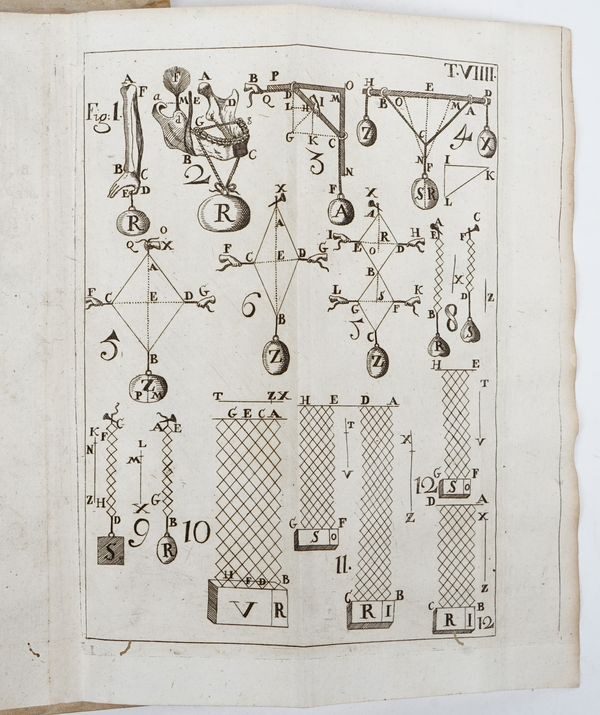 T.VIIII.
Fig.1.
A
F
B
C
E
D
R
F
a
A
M
E
D
d
G
g
B
C
2
R
B
P
O
Q
D
H
I
M
L
G
K
C
3
N
F
A
H
E
D
B
O
M
A
Z
C
X
4
N
F
S R
I
K
L
Q
O
X
A
F
C
E
D
G
5
B
Z
P M
X
A
F
C
E
D
G
6
B
Z
X
A
I
E
O
R
D
H
B
L
G
S
F
K
5
C
Z
A
E
F
C
X
D
Z
B
8
R
S
K
F
C
N
L
M
Z
H
X
D
9
S
A
E
G
B
10
R
T
Z X
G E C A
H
F
D
B
V
R
H
E
D
A
T
V
X
Z
G
F
S
O
11.
C
B
R I
H
E
T
V
G
F
12
S
O
D
A
X
Z
C
B
R I
12